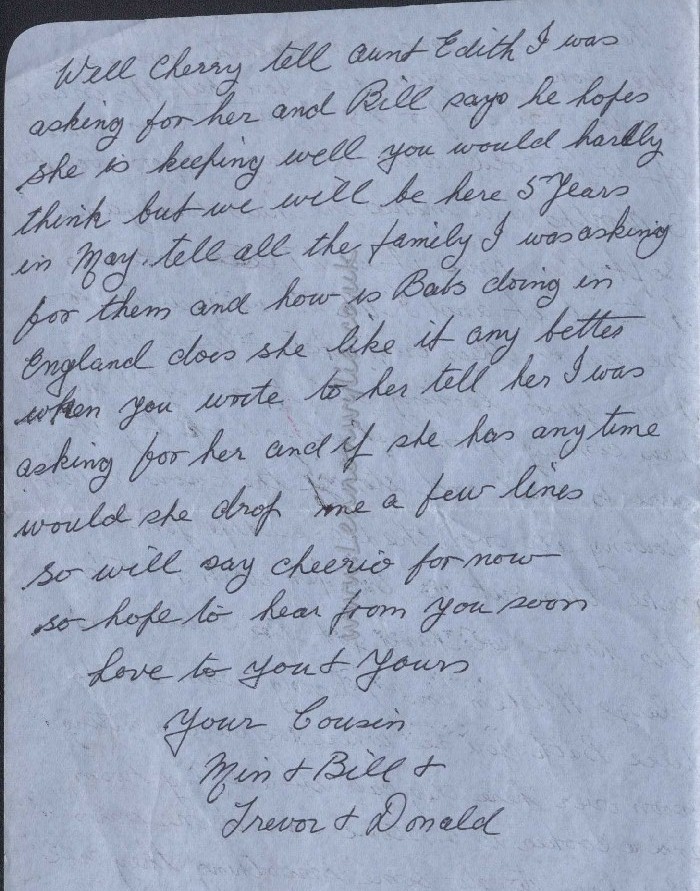 Well Cherry tell aunt Edith I was
asking for her and Bill says he hopes
she is keeping well you would hardly
think but we will be here 5 Years
in May. tell all the family I was asking
for them and how is Babs doing in
England does she like it any better
when you write to her tell her I was
asking for her and if she has any time
would she drop me a few lines
so will say cheerio for now
so hope to hear from you soon
Love to you & Yours
Your Cousin
Min & Bill &
Trevor & Donald